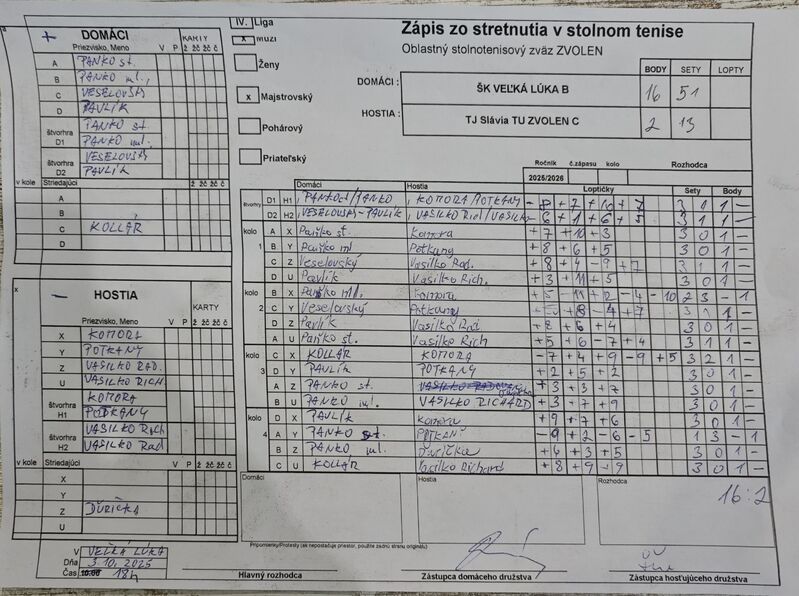 IV. Liga
Zápis zo stretnutia v stolnom tenise
Oblastný stolnotenisový zväz ZVOLEN
+ DOMÁCI
Priezvisko, Meno V P KARTY ž žč žč č
A PANKO st.
B PANKO ml.,
C VESELOVSKÝ
D PAVLÍK
štvorhra D1 PANKO st.
PANKO ml.
štvorhra D2 VESELOVSKÝ
PAVLÍK
v kole Striedajúci V P ž žč žč č
A
B
C KOLLÁR
D
x Muži
Ženy
x Majstrovský
Pohárový
Priateľský
BODY SETY LOPTY
DOMÁCI : ŠK VEĽKÁ LÚKA B 16 51
HOSTIA : TJ Slávia TU ZVOLEN C 2 13
Ročník č.zápasu kolo Rozhodca
2025/2026
Domáci Hostia Loptičky Sety Body
štvorhry D1 H1 KOMORA/POTKANY 3 1 1 –
D2 H2 VESELOVSKÝ-PAVLÍK 3 1 1 –
kolo 1 A X Panko st. Komora +7 +10 +3 3 0 1 –
B Y Panko ml Potkany +8 +6 +5 3 0 1 –
C Z Veselovský Vasilko Rad. +8 +4 -9 +7 3 1 1 –
D U Pavlík Vasilko Rich. +3 +11 +5 3 0 1 –
kolo 2 B X Panko ml. Komora +5 -11 +2 -4 -10 2 3 – 1
C Y Veselovský Potkany +8 -4 +7 3 1 1 –
D Z Pavlík Vasilko Rad +8 +6 +4 3 0 1 –
A U Panko st. Vasilko Rich +5 +6 -7 +4 3 1 1 –
kolo 3 C X KOLLÁR KOMORA -7 +4 +9 -9 +5 3 2 1 –
D Y PAVLÍK POTKANY +2 +5 +2 3 0 1 –
A Z PANKO st. +3 +3 +7 3 0 1 –
B U PANKO ml. VASILKO RICHARD +3 +7 +9 3 0 1 –
kolo 4 D X PAVLÍK Komora +9 +7 +6 3 0 1 –
A Y PANKO st. -9 +2 -6 -5 1 3 – 1
B Z PANKO ml. Ďurička +6 +3 +5 3 0 1 –
C U KOLLÁR Vasilko Richard +8 +9 -9 3 0 1 –
x – HOSTIA
Priezvisko, Meno V P KARTY ž žč žč č
X KOMORA
Y POTKANY
Z VASILKO RAD.
U VASILKO RICH.
štvorhra H1 KOMORA
POTKANY
štvorhra H2 VASILKO Rich
VASILKO Rad
v kole Striedajúci V P ž žč žč č
X
Y
Z ĎURIČKA
U
Domáci Hostia Rozhodca
16:2
Pripomienky/Protesty (ak nepostačuje priestor, použite zadnú stranu originálu)
V VEĽKÁ LÚKA
Dňa 3.10.2025
Čas 18h
Hlavný rozhodca
Zástupca domáceho družstva
Zástupca hosťujúceho družstva